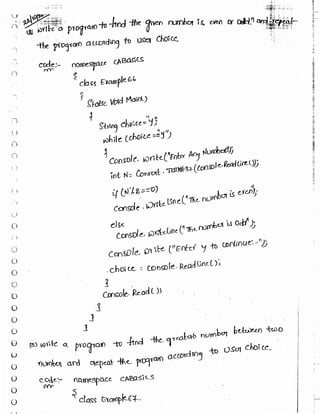 write a program to find the given number is even or odd? and repeat
the program according to user choice.
code:- namespace CABasics
{
class Example66
{
Static Void Main()
{
String choice="y";
while (choice=="y")
{
Console.write("Enter Any Number");
int N= Convert.ToInt32(console.ReadLine());
if (N%2==0)
Console.WriteLine("The number is even");
else
Console.WriteLine("The number is Odd");
Console.Write ("Enter y to continue:-");
choice = console.ReadLine();
}
Console.Read();
}
}
}
write a program to find the greatest number between two
number and repeat the program according to user choice.
code:- namespace CABasics
{
class Example67